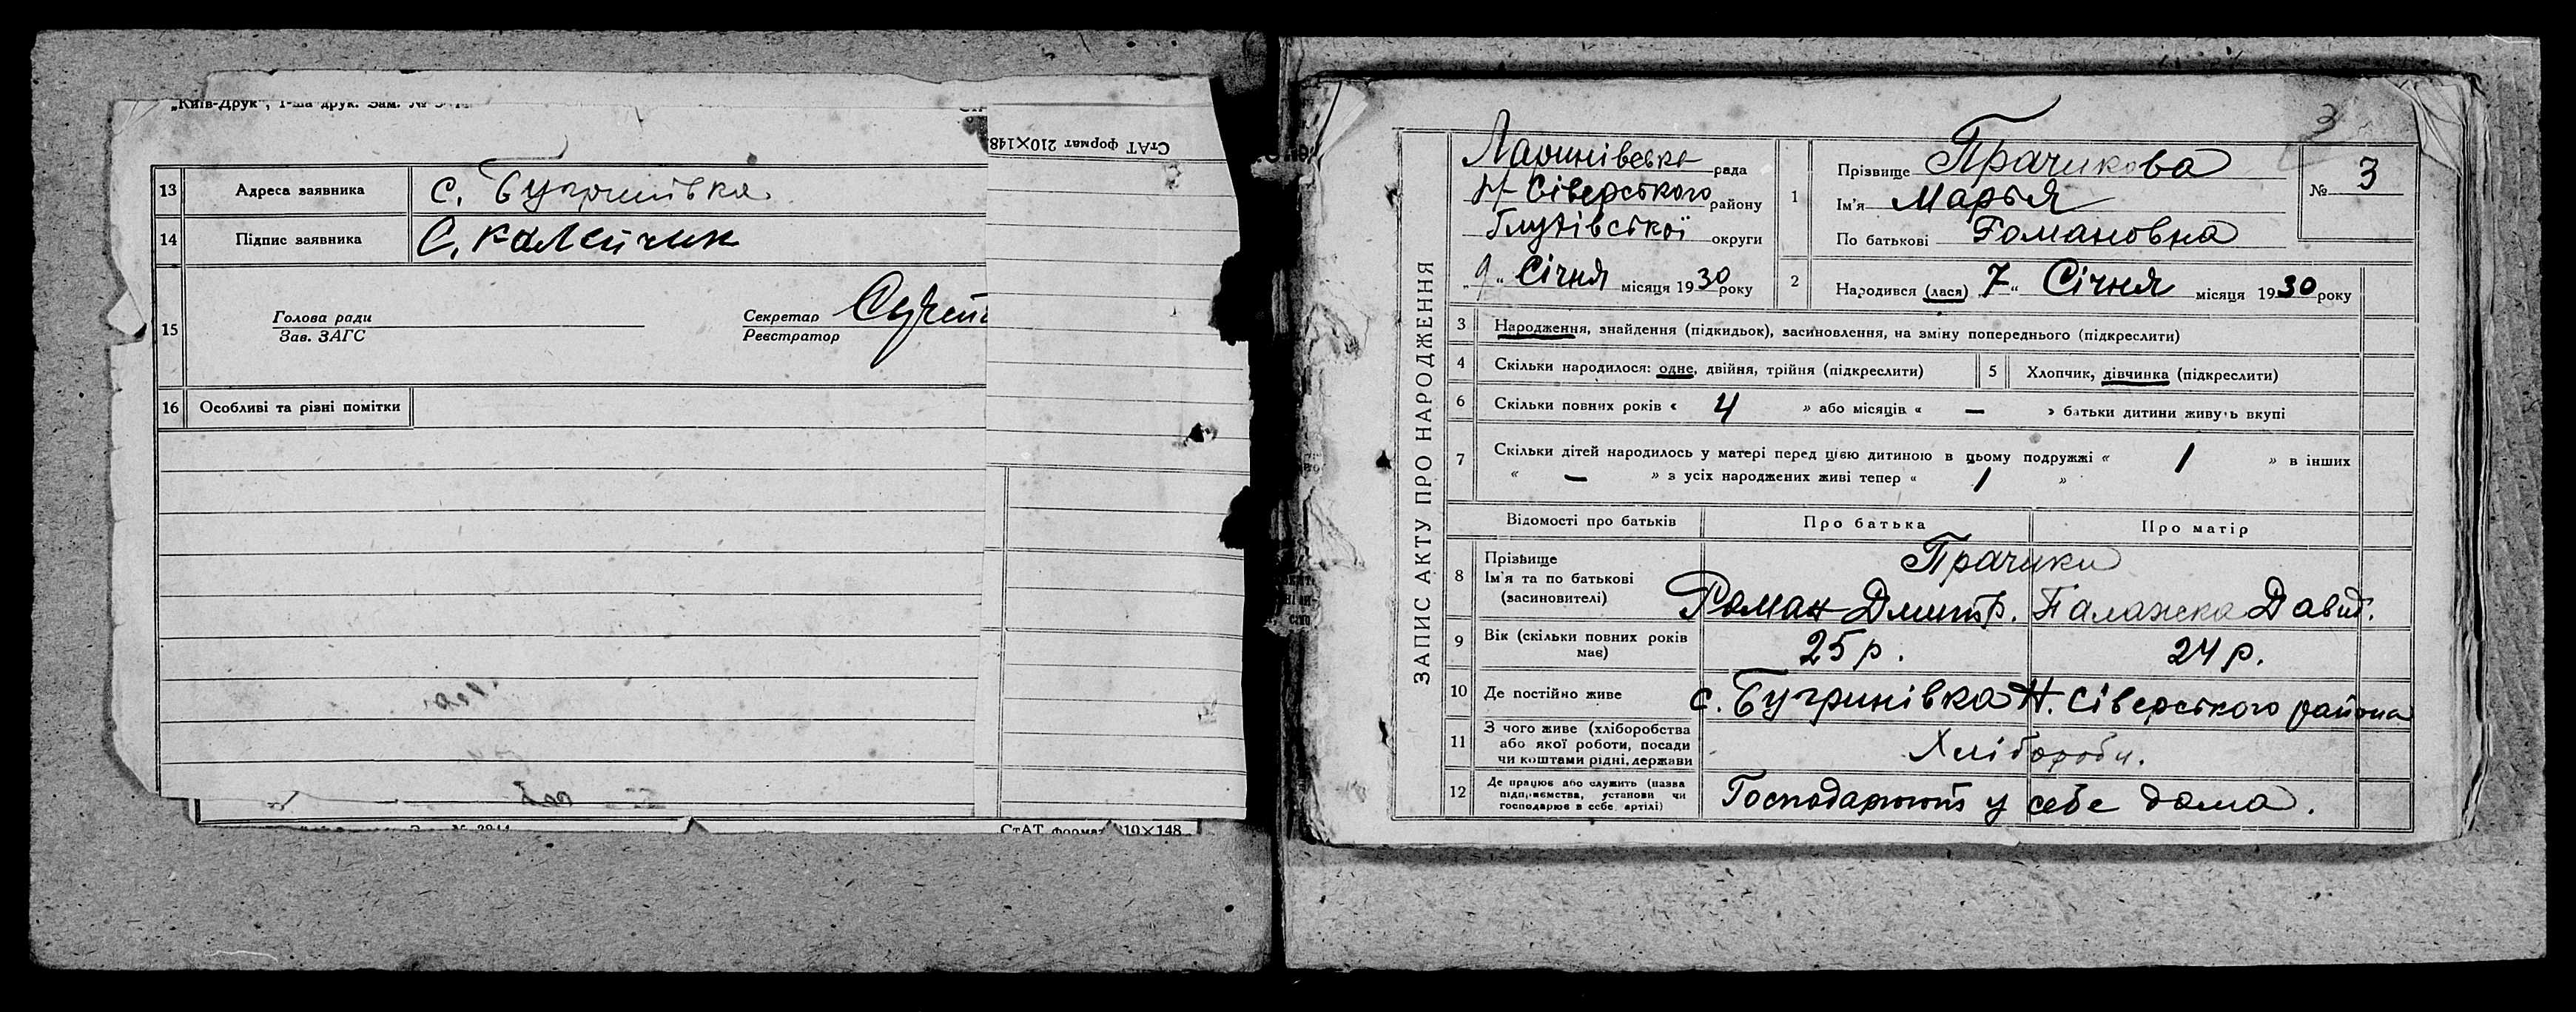 „Київ-Друк", 1-ша друк. Зам. №
СтАТ формат 210×148
13 Адреса заявника с. Бугринівка
14 Підпис заявника С. Калейчик
15 Голова ради
Зав. ЗАГС
Секретар
Реєстратор
16 Особливі та різні помітки
СтАТ формат 210×148
3
ЗАПИС АКТУ ПРО НАРОДЖЕННЯ
Ларинівська рада
Н-Сіверського району
Глухівської округи
„9" Січня місяця 1930 року
1 Прізвище Прачикова
Ім'я Марья
По батькові Романовна
№ 3
2 Народився (лася) 7 " Січня місяця 1930 року
3 Народження, знайдення (підкидьок), засиновлення, на зміну попереднього (підкреслити)
4 Скільки народилося: одне, двійня, трійня (підкреслити)
5 Хлопчик, дівчинка (підкреслити)
6 Скільки повних років « 4 » або місяців « — » батьки дитини живуть вкупі
7 Скільки дітей народилось у матері перед цією дитиною в цьому подружжі « 1 » в інших
« — » з усіх народжених живі тепер « 1 »
Відомості про батьків Про батька Про матір
8 Прізвище Прачики
Ім'я та по батькові
(засиновителі) Роман Дмитр. Палажка Давид.
9 Вік (скільки повних років
має) 25 р. 24 р.
10 Де постійно живе с. Бугринівка Н. Сіверського района
11 З чого живе (хліборобства
або якої роботи, посади
чи коштами рідні, держави Хлібороби.
12 Де працює або служить (назва
підприємства, установи чи
господарює в себе, артілі) Господарюють у себе дома.